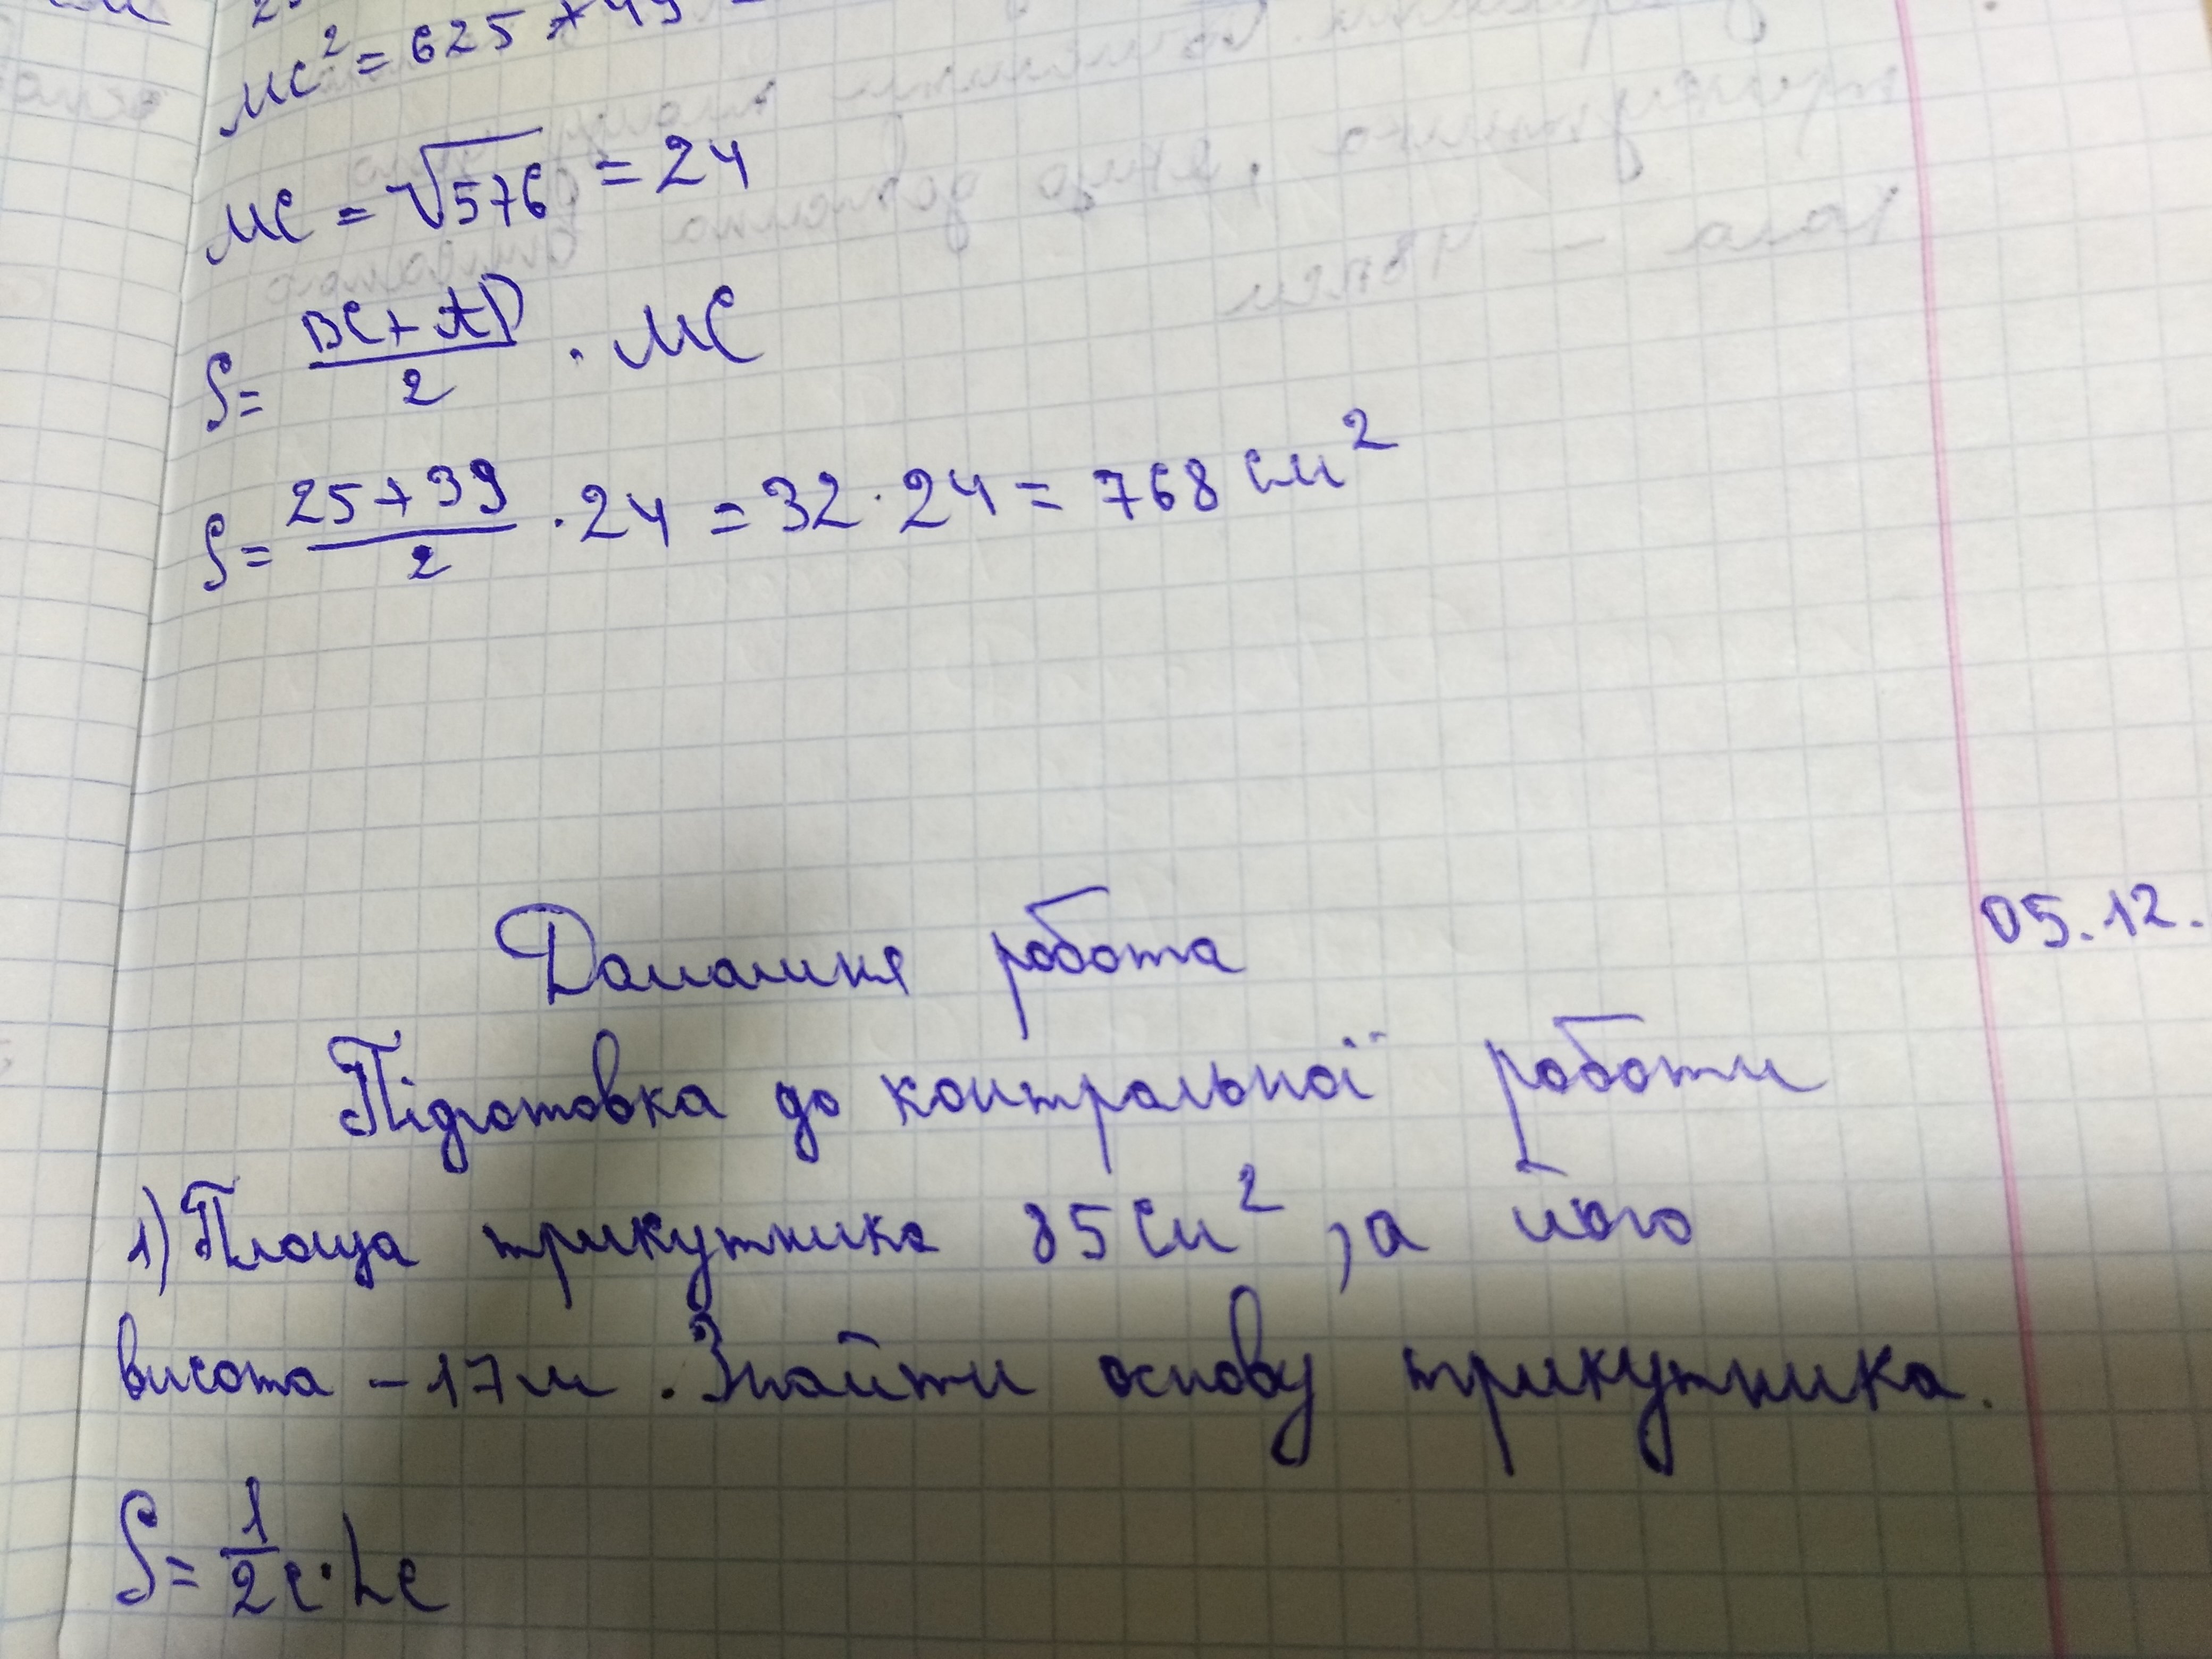 MC² = 625 + 49
MC = √576 = 24
S = (BC + AD)/2 · MC
S = (25 + 39)/2 · 24 = 32 · 24 = 768 см²
05.12.
Домашня робота
Підготовка до контрольної роботи
1) Площа трикутника 85 см², а його
висота – 17 м. Знайти основу трикутника.
S = 1/2 c · hc